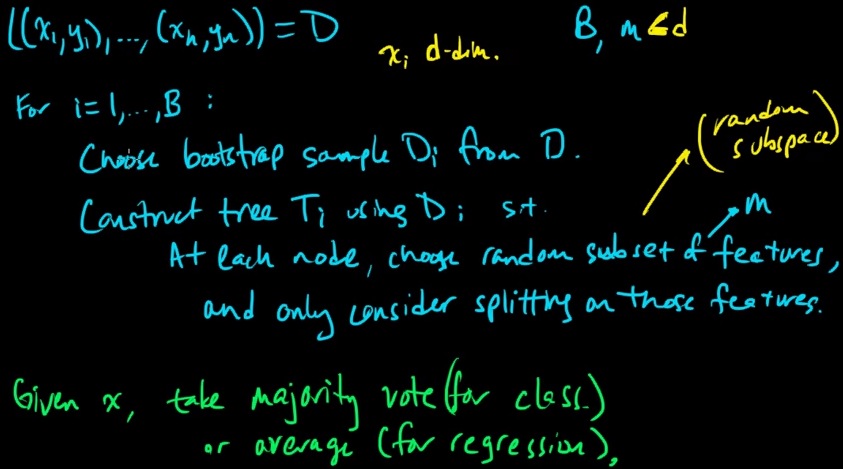 ((x₁,y₁),...,(xₙ,yₙ)) = D
xᵢ d-dim.
B, m ≤ d
For i=1,...,B :
Choose bootstrap sample Dᵢ from D.
(random subspace)
Construct tree Tᵢ using Dᵢ s.t.
m
At each node, choose random subset of features,
and only consider splitting on those features.
Given x, take majority vote (for class.)
or average (for regression).